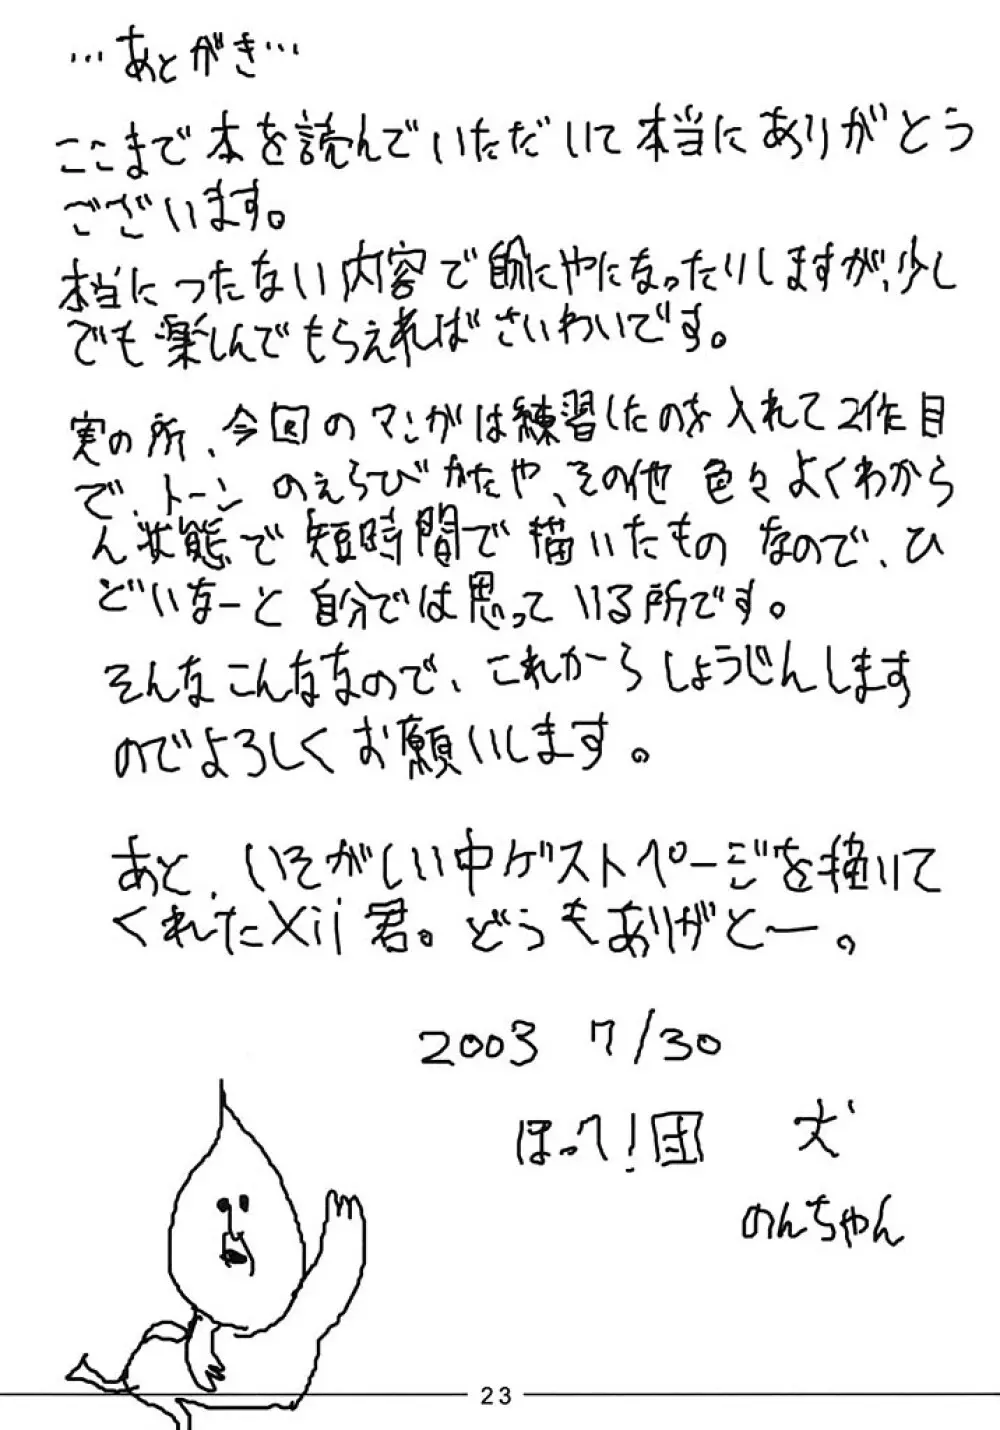 …あとがき…
ここまで本を読んでいただいて本当にありがとう
ございます。
本当につたない内容で
でも楽しんでもらえればさいわいです。
実の所、今回のマンガは練習したのを入れて2作目
で、トーンのえらびかたや、その他色々よくわから
ん状態で短時間で描いたものなので、ひ
どいなーと自分では思っている所です。
そんなこんななので、これからしょうじんします
のでよろしくお願いします。
あと、いそがしい中ゲストページを描いて
くれたXii君。どうもありがとー。
2003 7/30
ほって!団 犬
のんちゃん
23